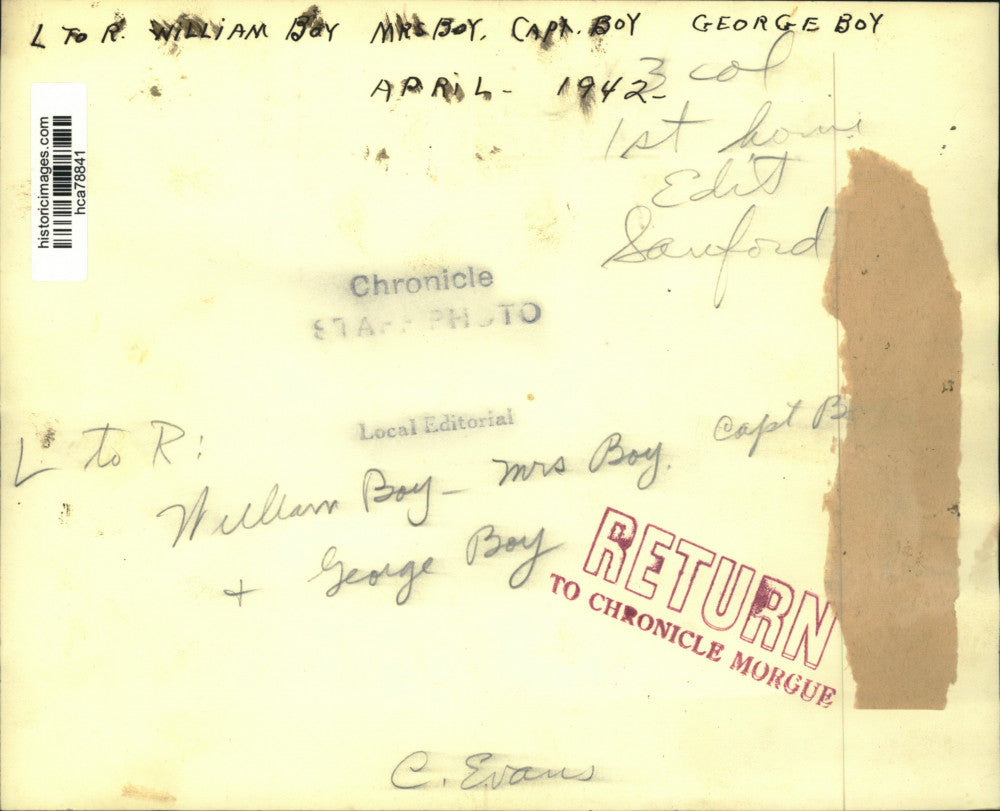 L TO R. WILLIAM BOY MRS BOY. CAPT. BOY GEORGE BOY
APRIL - 1942-
3 col
1st home
Edit
Sanford
historicimages.com
hca78841
Chronicle
STAFF PHOTO
Local Editorial
L to R:
William Boy - Mrs Boy. Capt
+ George Boy
RETURN
TO CHRONICLE MORGUE
C. Evans